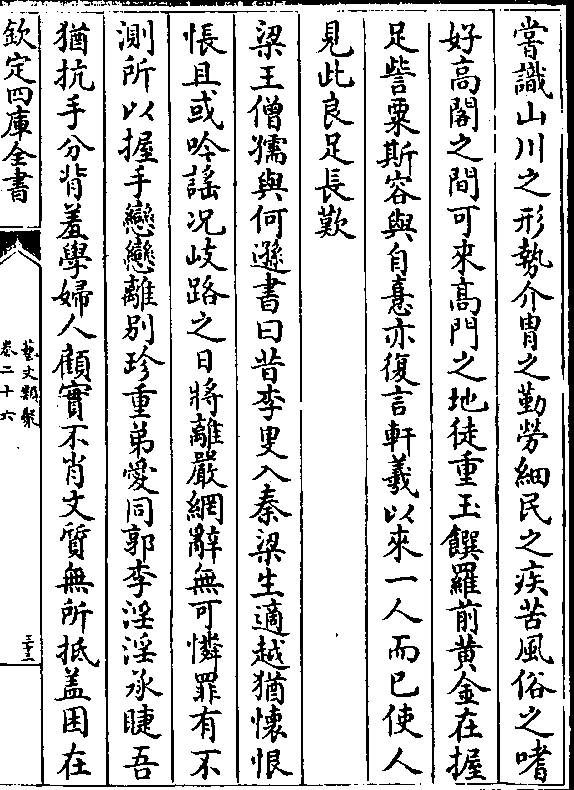 嘗識山川之形勢介胄之勤勞細民之疾苦風俗之嗜
好高閣之間可來高門之地徒重玉饌羅前黄金在握
足訾粟斯容與自憙亦復言軒羲以來一人而已使人
見此良足長歎
梁王僧孺與何遜書曰昔李叟入秦梁生適越猶懷恨
悵且或吟謡况岐路之日將離嚴網辭無可憐罪有不
測所以握手戀戀離别珍重弟愛同郭李淫淫承睫吾
猶抗手分背羞學婦人顧實不肖文質無所抵盖困在
欽定四庫全書
藝文類聚
卷二十六
三十三